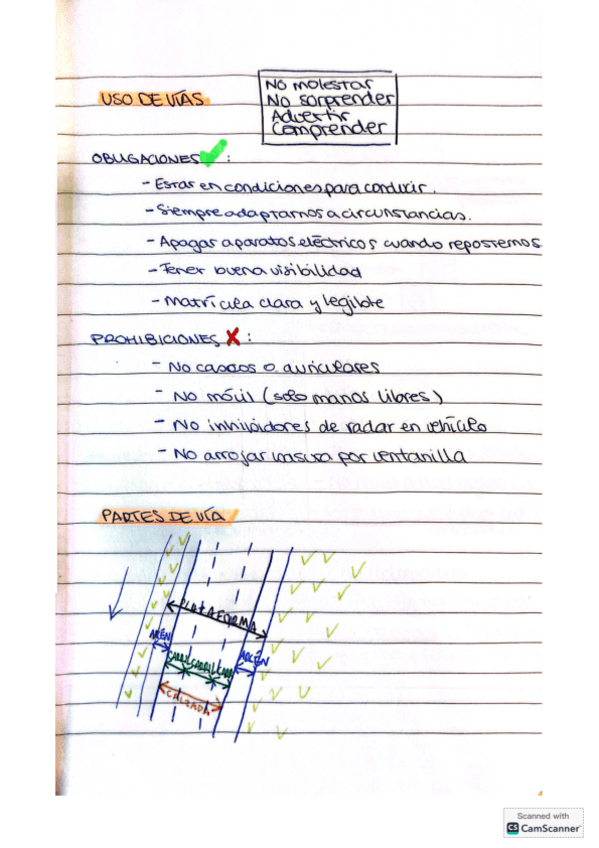 USO DE VÍAS
No molestar
No sorprender
Advertir
Comprender
OBLIGACIONES ✓ :
- Estar en condiciones para conducir.
- Siempre adaptarnos a circunstancias.
- Apagar aparatos eléctricos cuando repostemos
- Tener buena visibilidad
- Matrícula clara y legible
PROHIBICIONES ✗ :
- No cascos o auriculares
- No móvil (solo manos libres)
- No inhibidores de radar en vehículo
- No arrojar basura por ventanilla
PARTES DE VÍA
PLATAFORMA
ARCÉN
ARCÉN
CARRIL CARRIL CARR
CALZADA
Scanned with
CS CamScanner